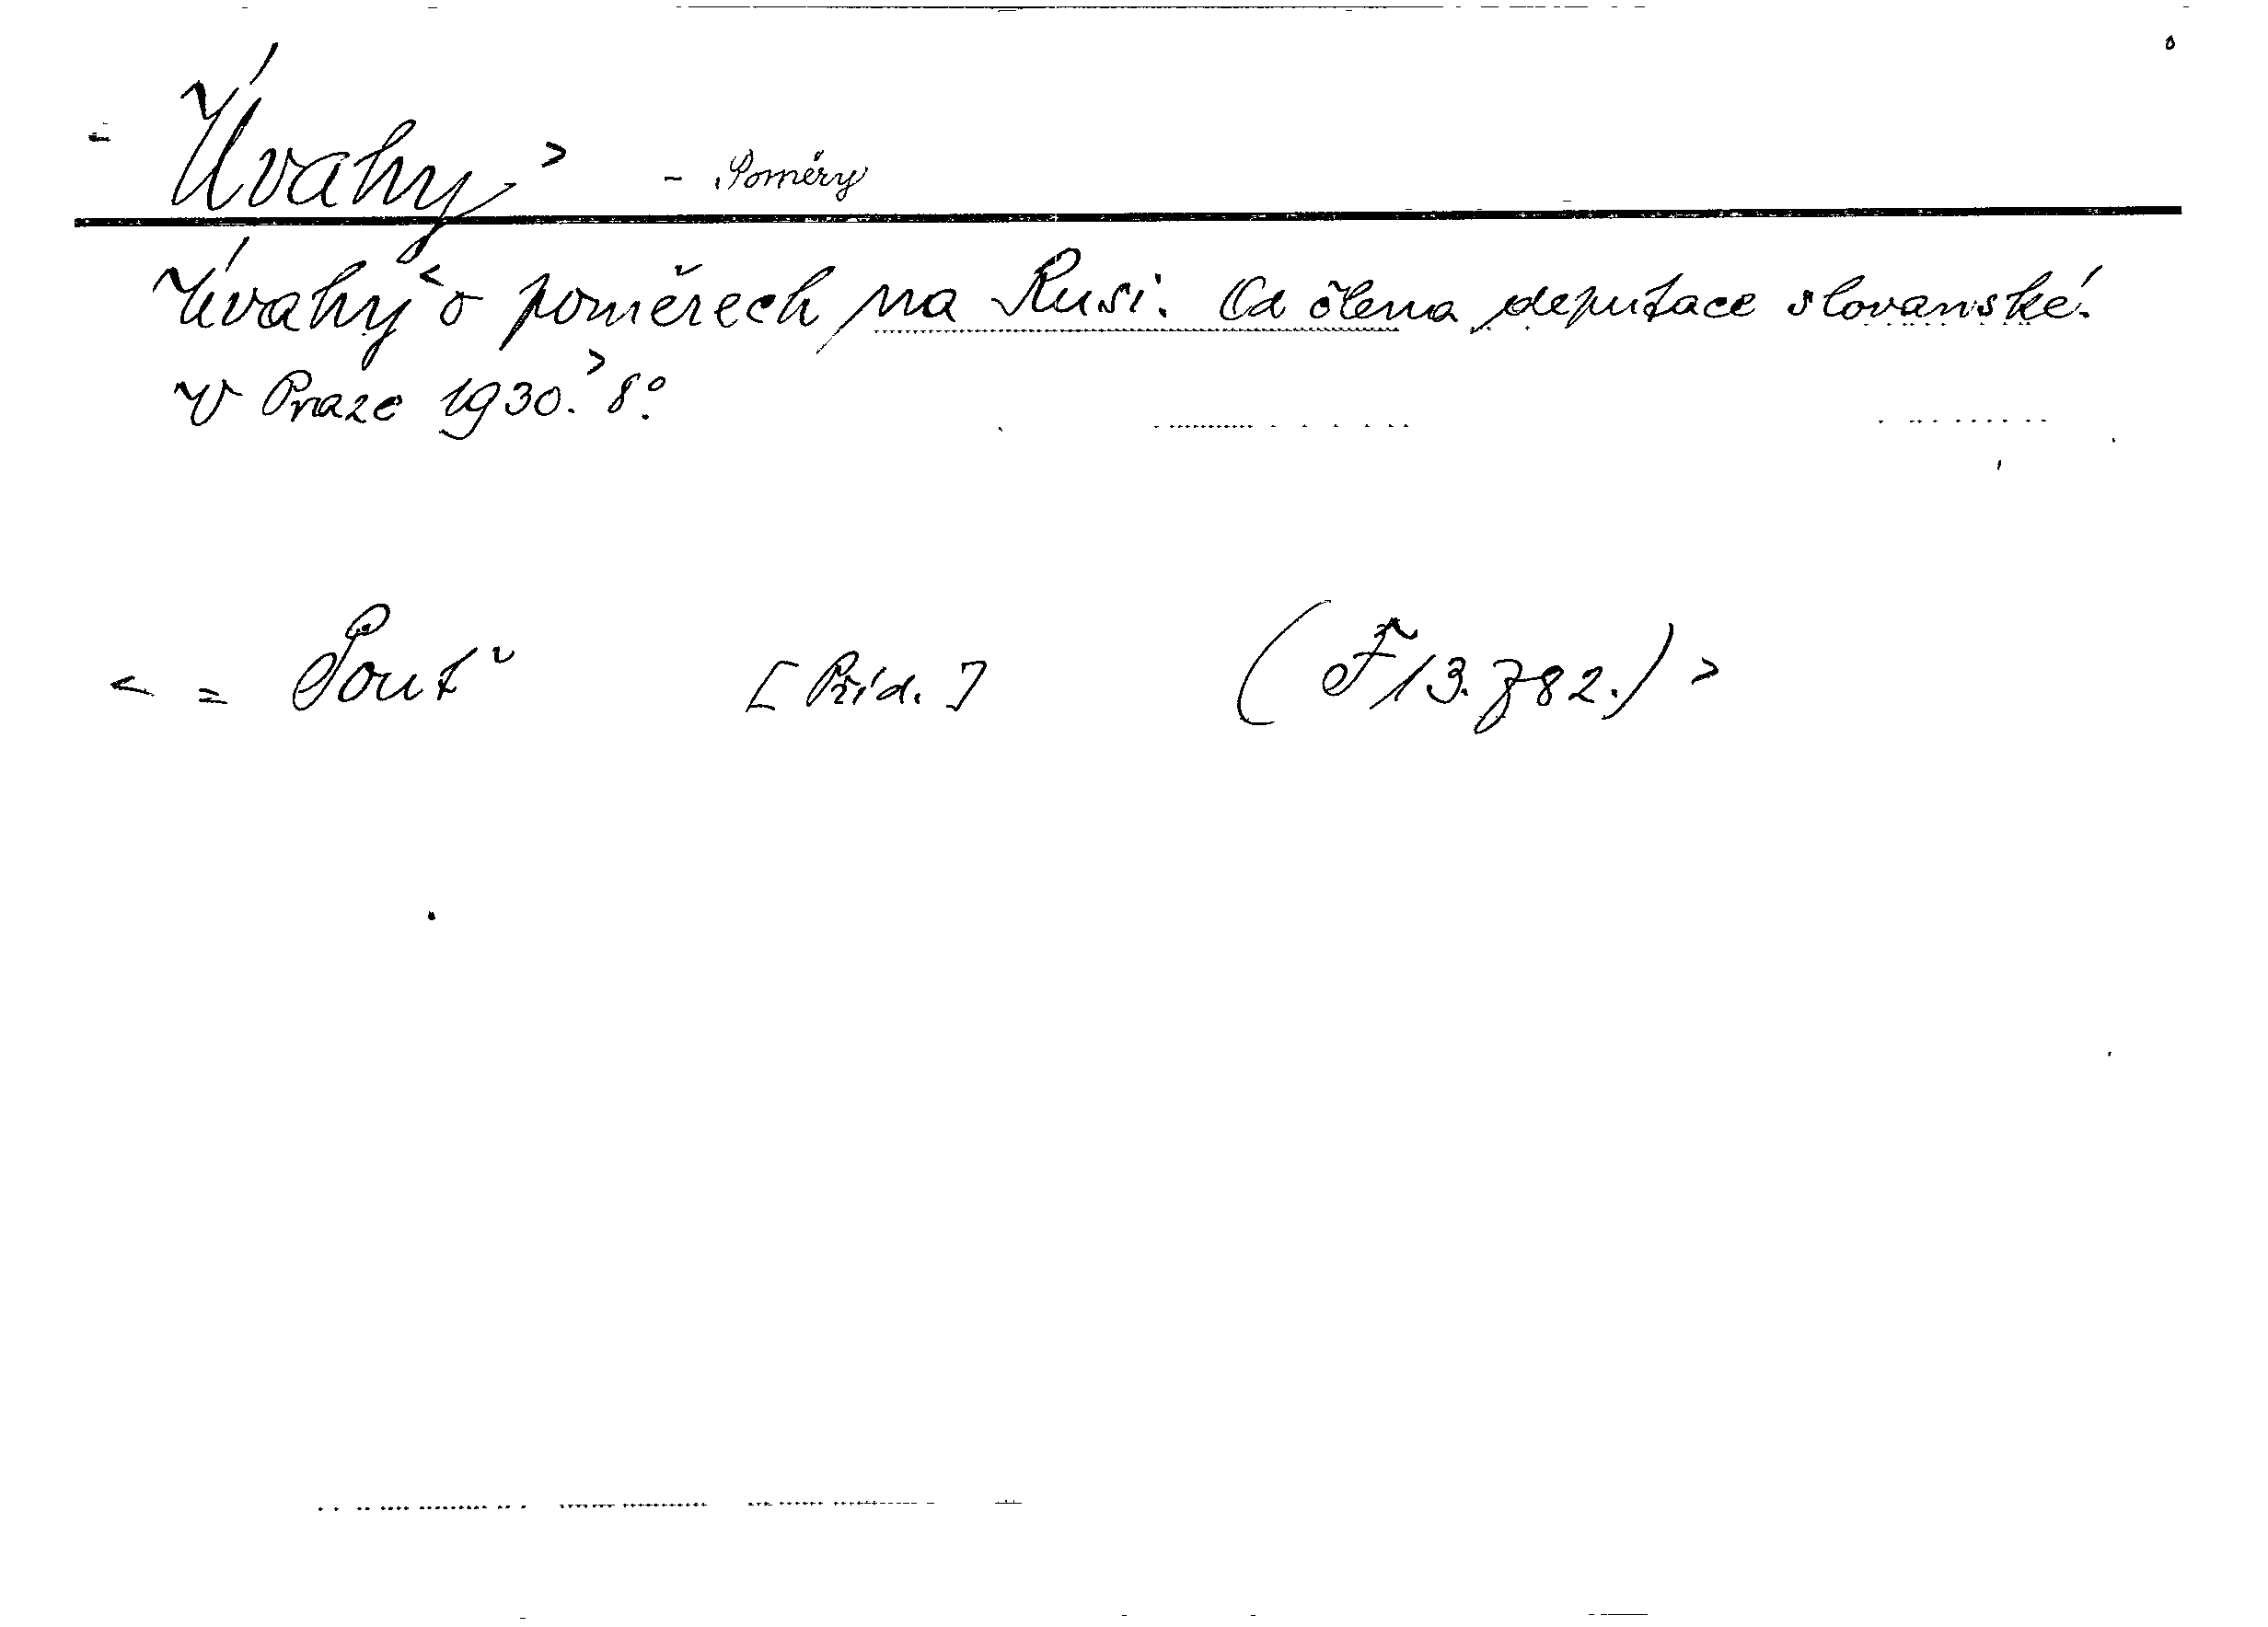 Úvahy > - Poměry
Úvahy < o poměrech na Rusi. Od člena deputace slovanské.
V Praze 1930. > 8°.
< = Pouť [Příd.] (F 13. z 82.) >